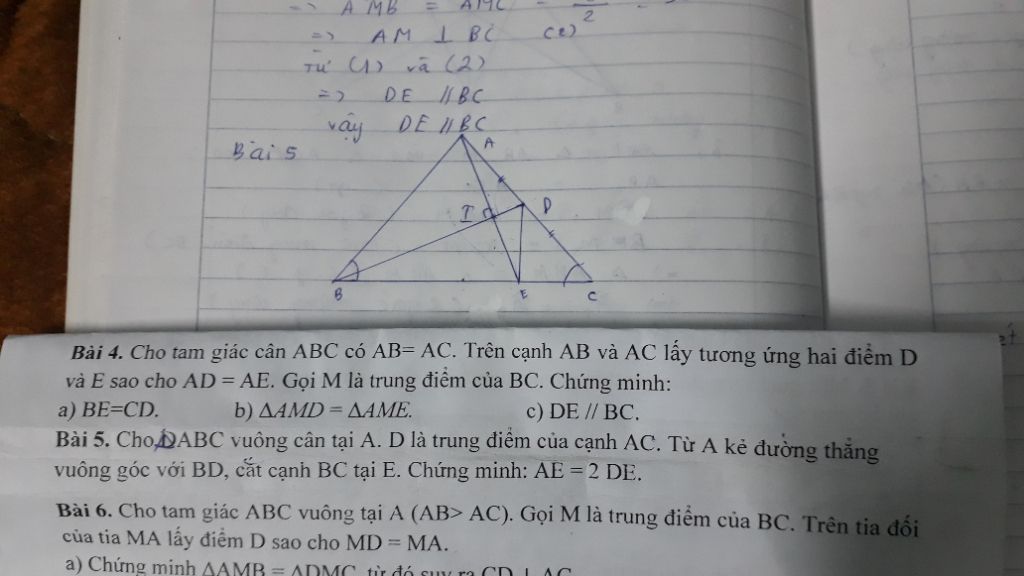 => AMB = AMC =
2
=> AM ⊥ BC (2)
Từ (1) và (2)
=> DE // BC
vậy DE // BC
Bài 5
A
I
D
B
E
C
Bài 4. Cho tam giác cân ABC có AB= AC. Trên cạnh AB và AC lấy tương ứng hai điểm D
và E sao cho AD = AE. Gọi M là trung điểm của BC. Chứng minh:
a) BE=CD. b) ΔAMD = ΔAME. c) DE // BC.
Bài 5. Cho ΔABC vuông cân tại A. D là trung điểm của cạnh AC. Từ A kẻ đường thẳng
vuông góc với BD, cắt cạnh BC tại E. Chứng minh: AE = 2 DE.
Bài 6. Cho tam giác ABC vuông tại A (AB> AC). Gọi M là trung điểm của BC. Trên tia đối
của tia MA lấy điểm D sao cho MD = MA.
a) Chứng minh ΔAMB = ΔDMC, từ đó suy ra CD ⊥ AC